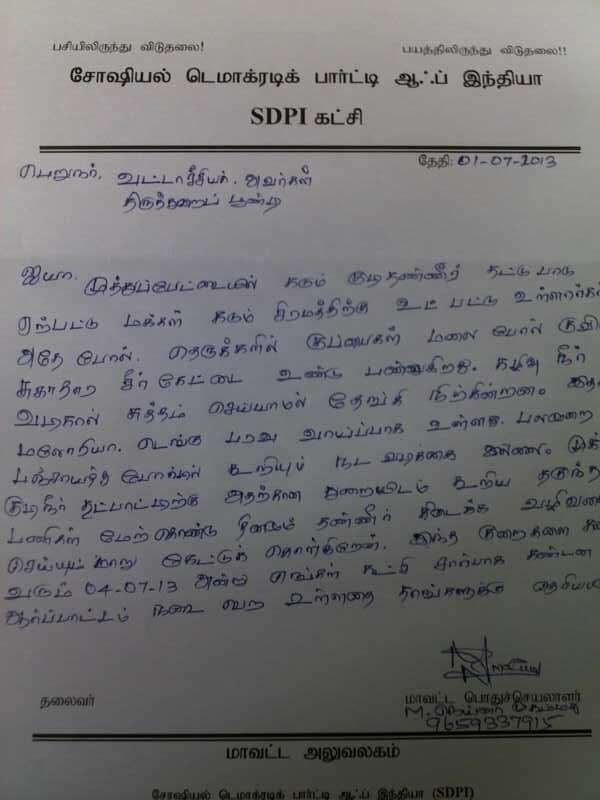 பசியிலிருந்து விடுதலை! பயத்திலிருந்து விடுதலை!!
சோஷியல் டெமாக்ரடிக் பார்ட்டி ஆஃப் இந்தியா
SDPI கட்சி
தேதி: 01-07-2013
பெறுநர், வட்டாச்சியர். அவர்கள்
திருத்துறைப் பூண்டி
ஐயா. முத்துப்பேட்டையில் கடும் குடிதண்ணீர் தட்டுபாடு
ஏற்பட்டு மக்கள் கடும் சிரமத்திற்கு உட் பட்டு உள்ளார்கள்
அதே போல். தெருக்களில் குப்பைகள் மலை போல் குவி
சுகாதார சீர்கேட்டை உண்டு பண்ணுகிறது. கழிவு நீர்
வடிகால் சுத்தம் செய்யாமல் தேங்கி நிற்கின்றன. இத
மலேரியா. டெங்கு பரவ வாய்ப்பாக உள்ளது. பலமுறை
கூறியும் நட வடிக்கை இல்லை.
குடிநீர் தட்பாட்டிற்கு அதற்கான துறையிடம் கூறிய தகுந்த
பணிகள் மேற்கொண்டு தினமும் தண்ணீர் கிடைக்க வழிவகை
செய்யுமாறு கேட்டுக் கொள்கிறேன். இந்த குறைகளை
வரும் 04-07-13 அன்று எங்கள் கட்சி சார்பாக கண்டன
ஆர்ப்பாட்டம் நடை பெற உள்ளதை தாங்களுக்கு
தலைவர் மாவட்ட பொதுச்செயலாளர்
9659337915
மாவட்ட அலுவலகம்
சோஷியல் டெமாக்ரடிக் பார்ட்டி ஆஃப் இந்தியா (SDPI)